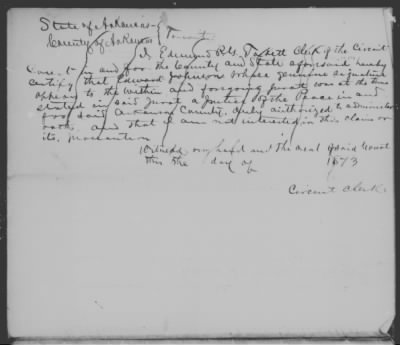 State of Arkansas
County of Arkansas
I Edmund R. Clerk of the Circuit
Court in and for the County and State aforesaid hereby
certify that Edward Johnson whose genuine signature
appears to the within and foregoing jurat was at the time
stated in said Jurat a Justice of the Peace in and
for said Arkansas County, duly authorized to administer
oaths and that I am not interested in this claim or
its prosecution
Witness my hand and the seal of said Court
this the day of 1873
Circuit Clerk